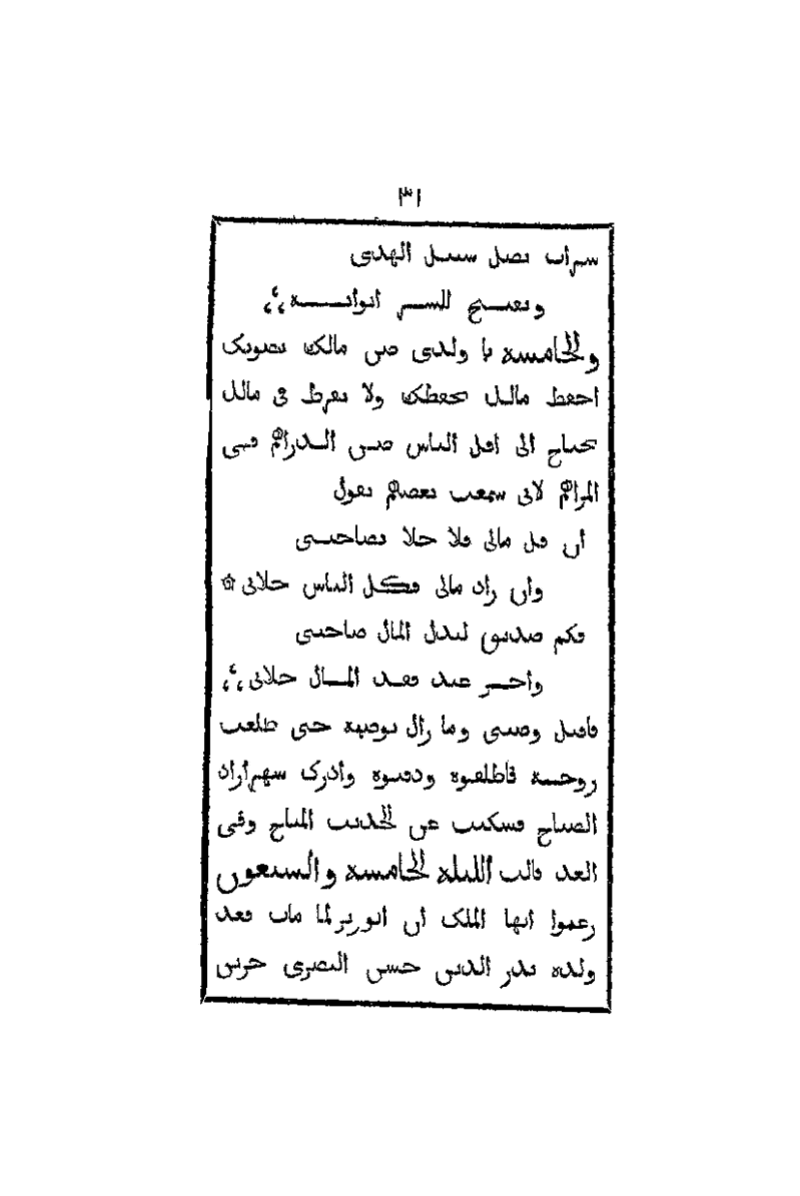 ٣١
شراب يضل سبيل الهدى
ويفتح للشر ابوابـــه
والخامسة يا ولدى صن مالك يصونك
احفظ مالك يحفظك ولا تفرط فى مالك
تحتاج الى اقل الناس صن الدراهم فهى
المراهم لانى سمعت بعضهم يقول
ان قل مالى فلا خلا يصاحبنى
وان زاد مالى فكل الناس خلانى ۞
فكم صديق لبذل المال صاحبنى
واخر عند فقد المال خلانى
فاقبل وصيتى وما زال يوصيه حتى طلعت
روحه فاطلعوه ودفنوه وادرك شهرازاد
الصباح فسكتت عن الحديث المباح وفى
الغد قالت الليلة الخامسة والسبعون
زعموا ايها الملك ان الوزير لما مات قعد
ولده بدر الدين حسن البصرى حزين